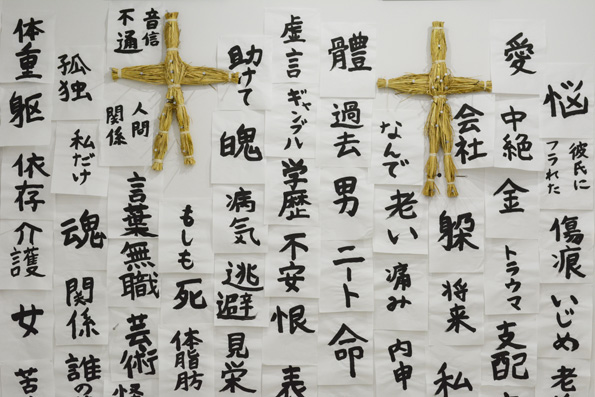 悩
彼氏に
フラれた
傷痕
いじめ
愛
中絶
金
トラウマ
支配
会社
将来
私
なんで
老い
痛み
内申
體
過去
男
ニート
命
虚言
ギャンブル
学歴
不安
恨
表
助けて
病気
逃避
見栄
もしも
死
体脂肪
音信
不通
人間
関係
言葉
無職
芸術
孤独
私だけ
魂
関係
誰の
体重
躯
依存
介護
女
苦